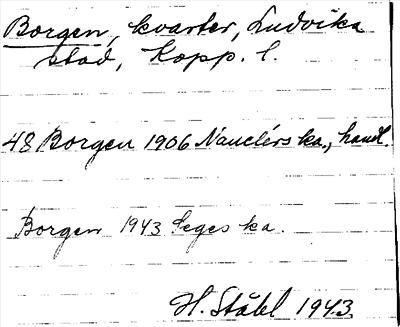 Borgen, kvarter, Ludvika
stad, Kopp. l.
48 Borgen 1906 Nauclérs ka., handl.
Borgen 1943 Seges ka.
H. Ståhl 1943